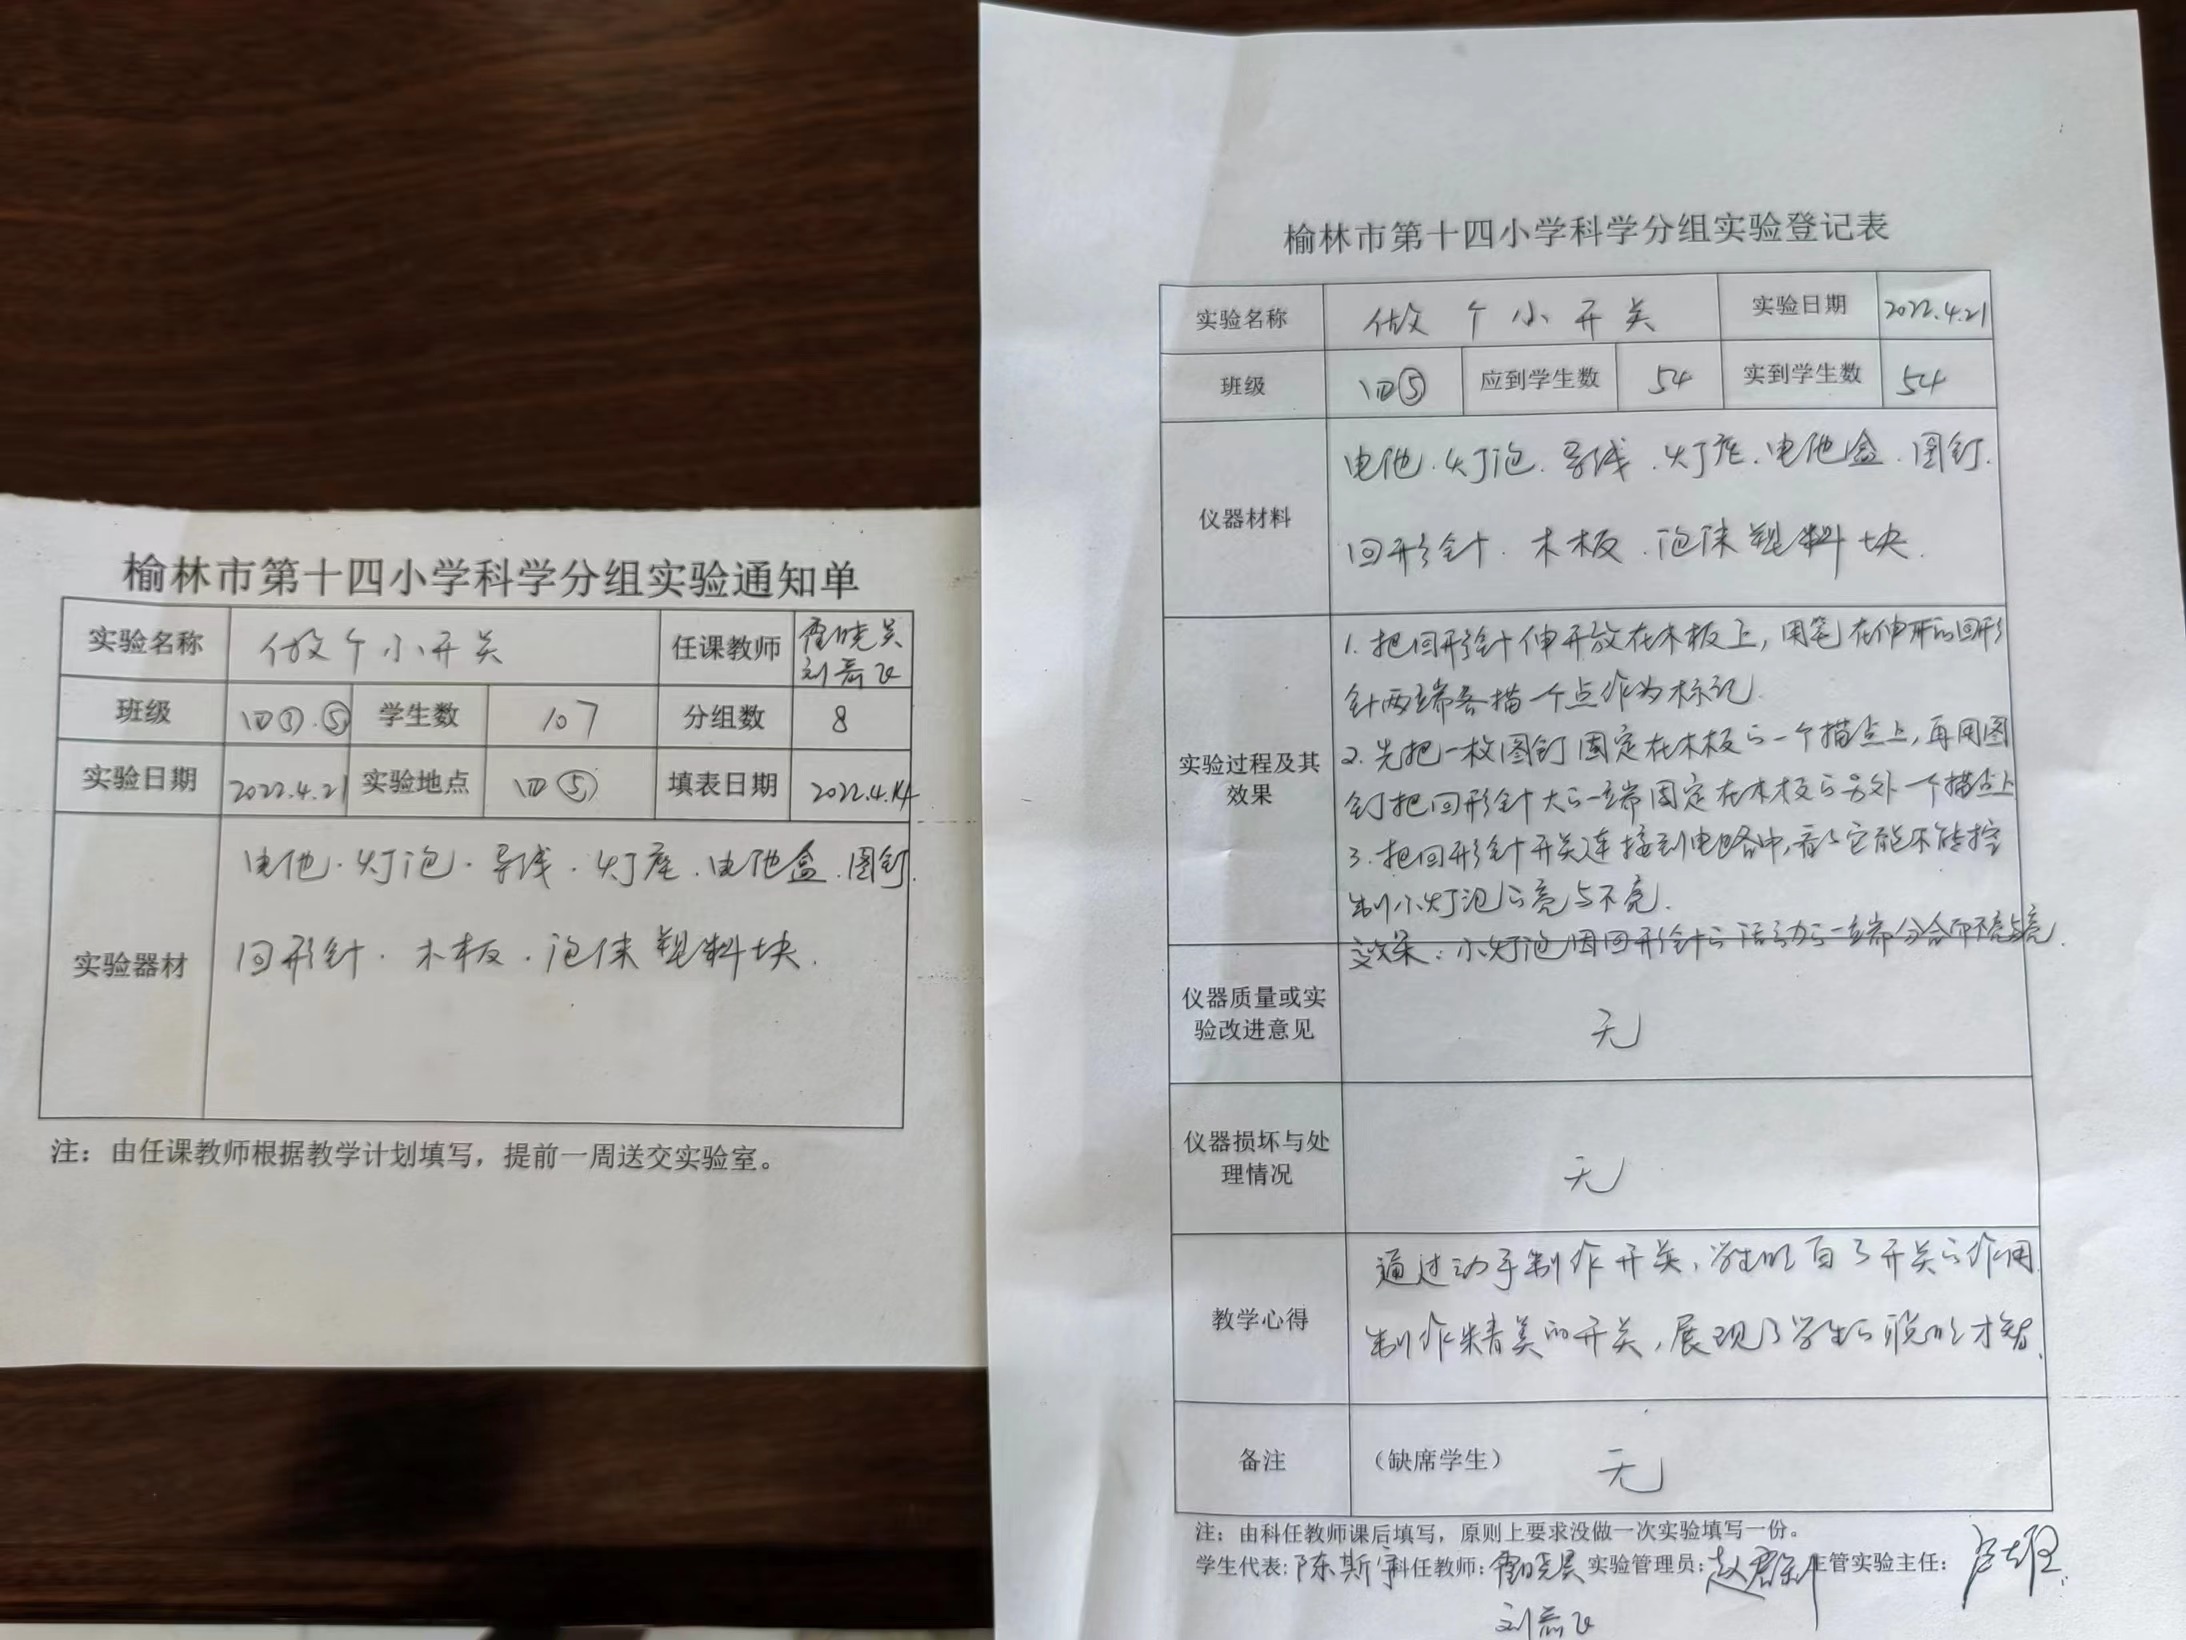 榆林市第十四小学科学分组实验通知单
实验名称 做个小开关 任课教师 刘
班级 四①.⑤ 学生数 107 分组数 8
实验日期 2022.4.21 实验地点 四⑤ 填表日期 2022.4.14
实验器材
电池.灯泡.导线.灯座.电池盒.图钉.
回形针.木板.泡沫塑料块.
注：由任课教师根据教学计划填写，提前一周送交实验室。
榆林市第十四小学科学分组实验登记表
实验名称 做个小开关 实验日期 2022.4.21
班级 四⑤ 应到学生数 54 实到学生数 54
仪器材料
电池.灯泡.导线.灯座.电池盒.图钉.
回形针.木板.泡沫塑料块.
实验过程及其
效果
1.把回形针伸开放在木板上，用笔在伸开的回形
针两端各描一个点作为标记.
2.先把一枚图钉固定在木板的一个描点上，再用图
钉把回形针大的一端固定在木板的另外一个描点上
3.把回形针开关连接到电路中，看看它能不能控
制小灯泡的亮与不亮.
效果：小灯泡因回形针的活动的一端分合而不亮与亮.
仪器质量或实
验改进意见
无
仪器损坏与处
理情况
无
教学心得
通过动手制作开关，学生明白了开关的作用.
制作精美的开关，展现了学生的聪明才智.
备注 （缺席学生） 无
注：由科任教师课后填写，原则上要求没做一次实验填写一份。
学生代表：陈斯宇 科任教师： 实验管理员： 主管实验主任：
刘